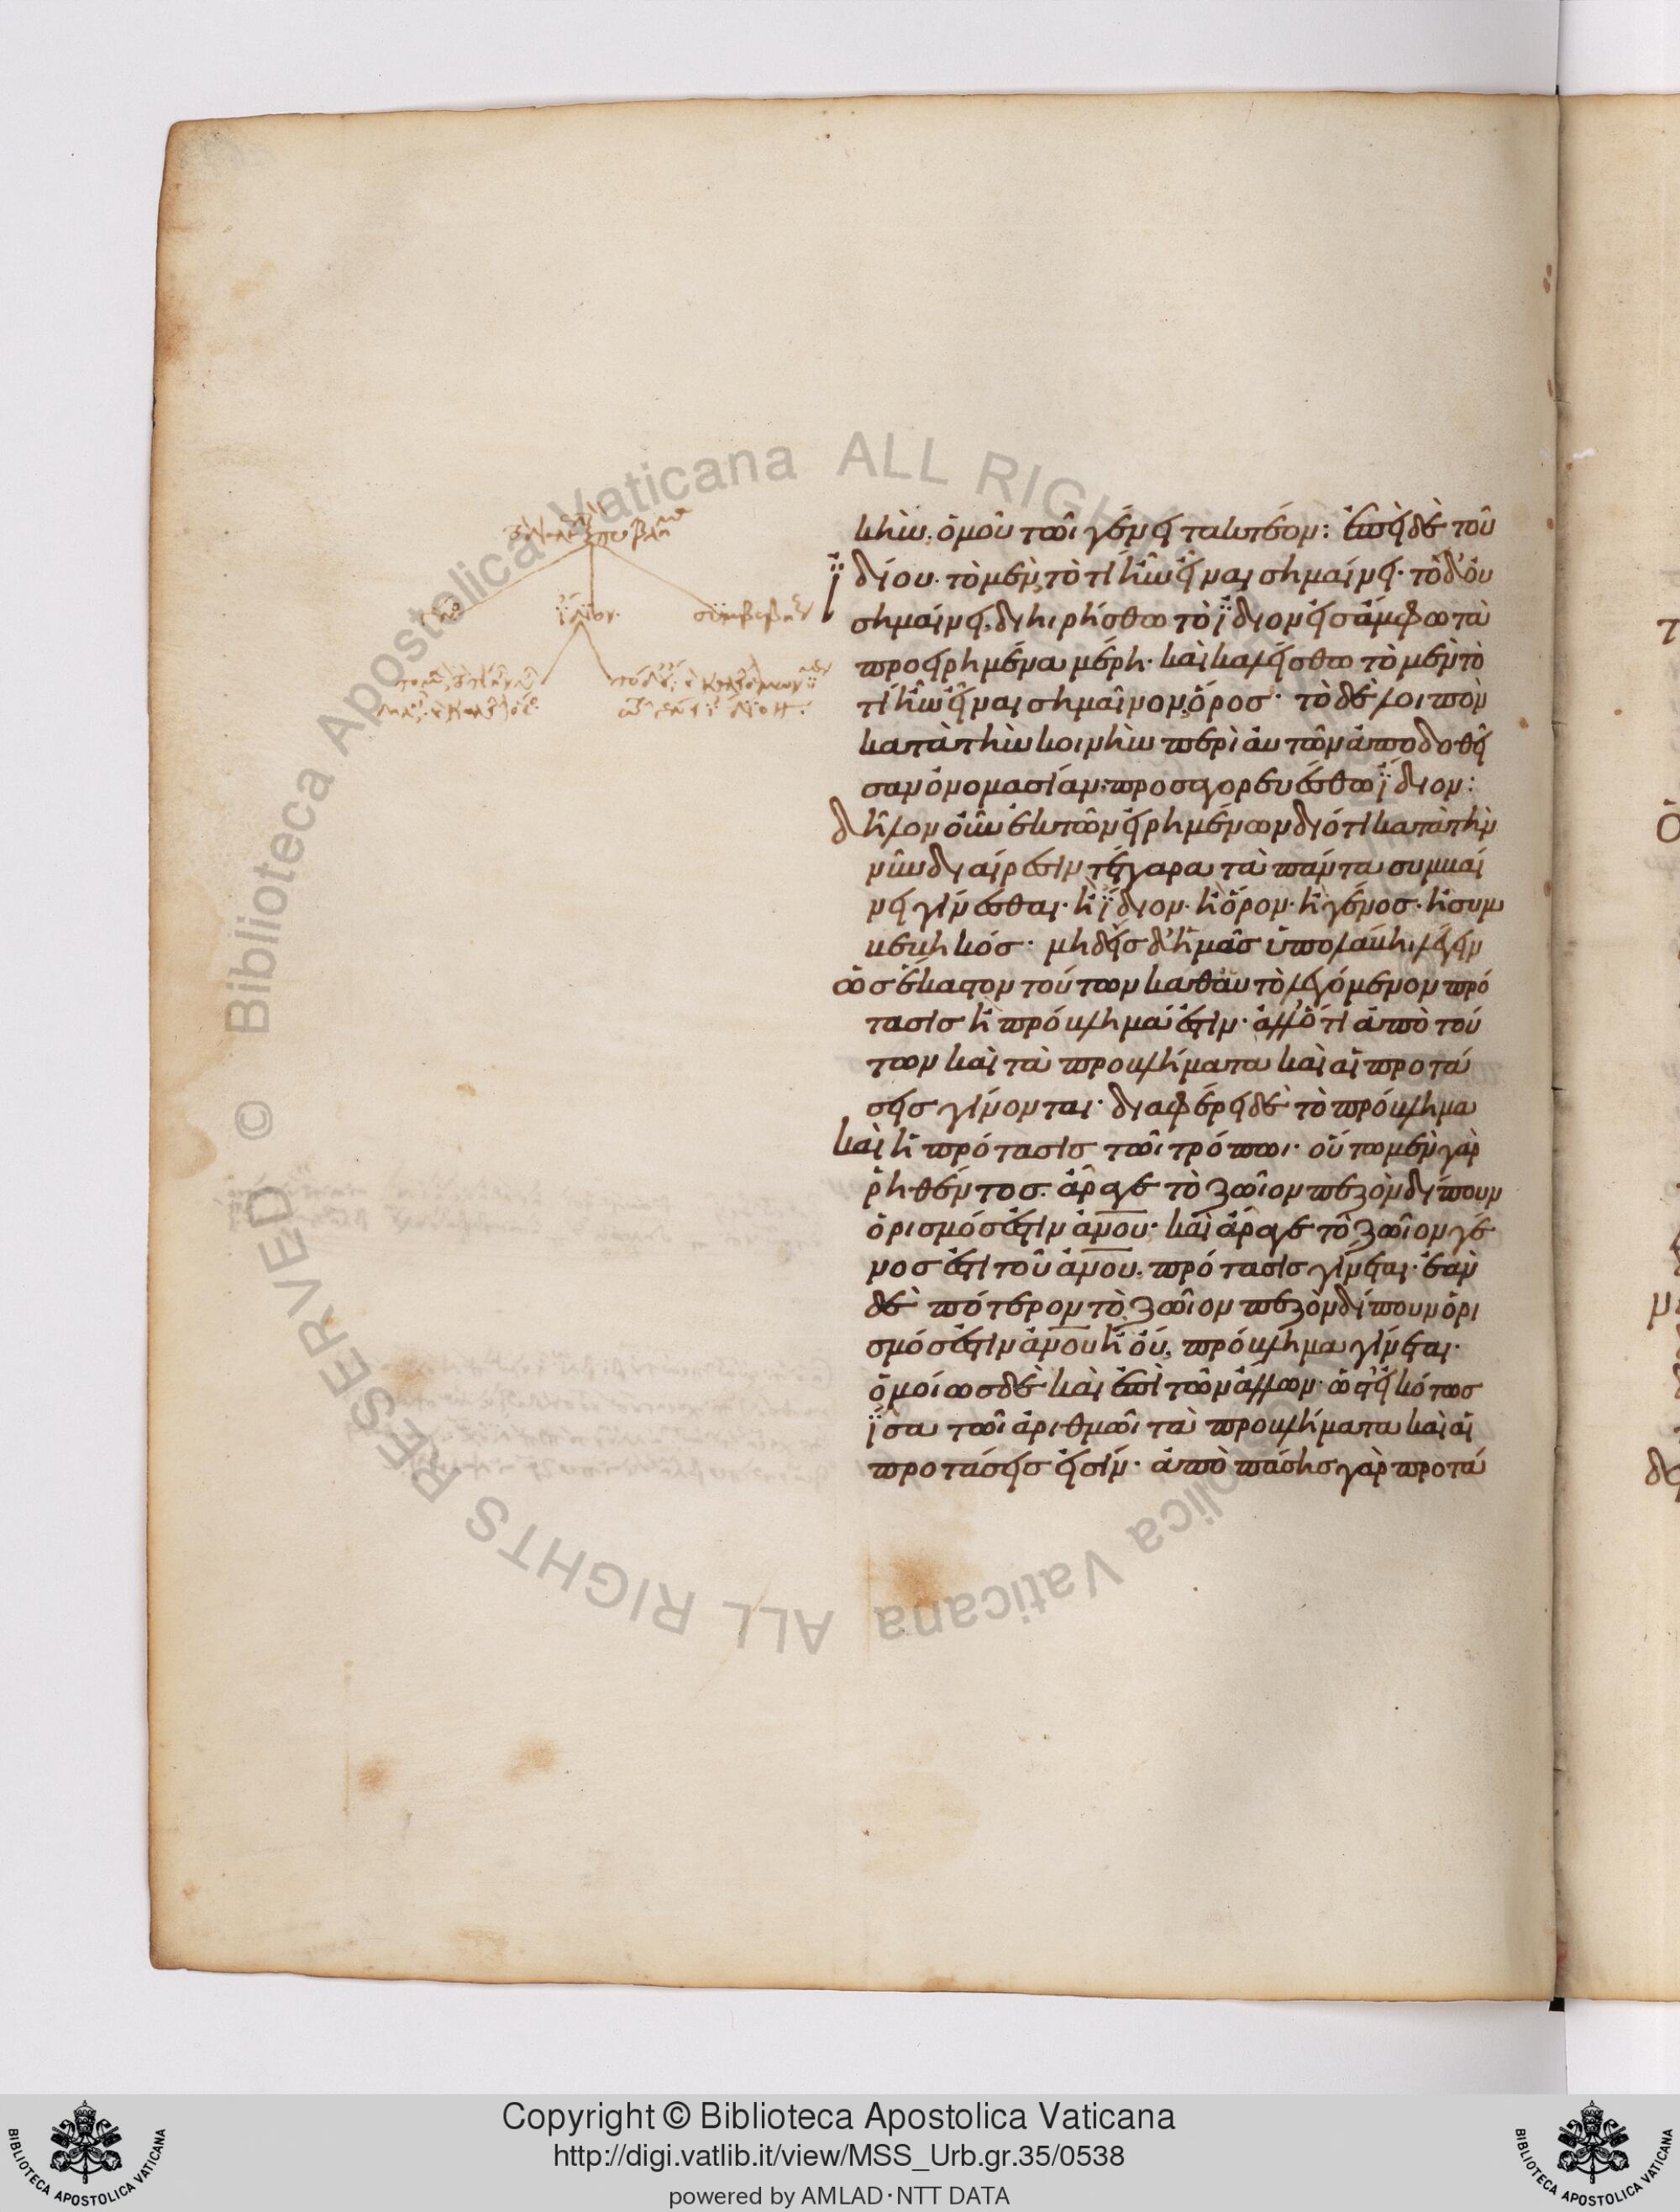 κὴν, ὁμοῦ τῶι γένει τακτέον: ἐπεὶ δὲ τοῦ
ϊδίου· τὸ μὲν, τὸ τί ἦν εἶναι σημαίνει· τὸ δ' οὐ
σημαίνει, διηιρήσθω τὸ ϊδιον εἰς ἄμφω τὰ
προειρημένα μέρη· καὶ καλείσθω τὸ μὲν τὸ
τί ἦν εἶναι σημαῖνον, ὅρος· τὸ δὲ λοιπὸν
κατὰ τὴν κοινὴν περὶ αὐτῶν ἀποδοθεῖ
σαν ὀνομασίαν· προσαγορευέσθω ϊδιον:
δῆλον οὖν ἐκ τῶν εἰρημένων διότι κατὰ τὴν
νῦν διαίρεσιν τέτταρα τὰ πάντα συμβαί
νει γίνεσθαι· ἢ ϊδιον· ἢ ὅρον· ἢ γένος· ἢ συμ
βεβηκός· μηδεὶς δ' ἡμᾶς ὑπολάβηι λέγειν
ὡς ἕκαστον τούτων καθ' αὑτὸ λεγόμενον πρό
τασις ἢ πρόβλημά ἐστιν· ἀλλ' ὅτι ἀπὸ τού
των καὶ τὰ προβλήματα καὶ αἱ προτά
σεις γίνονται· διαφέρει δὲ τὸ πρόβλημα
καὶ ἡ πρότασις τῶι τρόπωι· οὕτω μὲν γὰρ
ῥηθέντος. ἆρά γε τὸ ζῶιον πεζὸν δίπουν
ὁρισμός ἐστιν ἀνου· καὶ ἆρά γε τὸ ζῶιον γέ
νος ἐστὶ τοῦ ἀνου, πρότασις γίνεται· ἐὰν
δὲ πότερον τὸ ζῶιον πεζὸν δίπουν ὁρι
σμός ἐστιν ἀνου ἢ οὔ, πρόβλημα γίνεται·
ὁμοίως δὲ καὶ ἐπὶ τῶν ἄλλων· ὥστ' εἰκότως
ϊσα τῶι ἀριθμῶι τὰ προβλήματα καὶ αἱ
προτάσεις εἰσίν· ἀπὸ πάσης γὰρ προτά
Copyright © Biblioteca Apostolica Vaticana
http://digi.vatlib.it/view/MSS_Urb.gr.35/0538
powered by AMLAD·NTT DATA
BIBLIOTECA APOSTOLICA VATICANA
BIBLIOTECA APOSTOLICA VATICANA